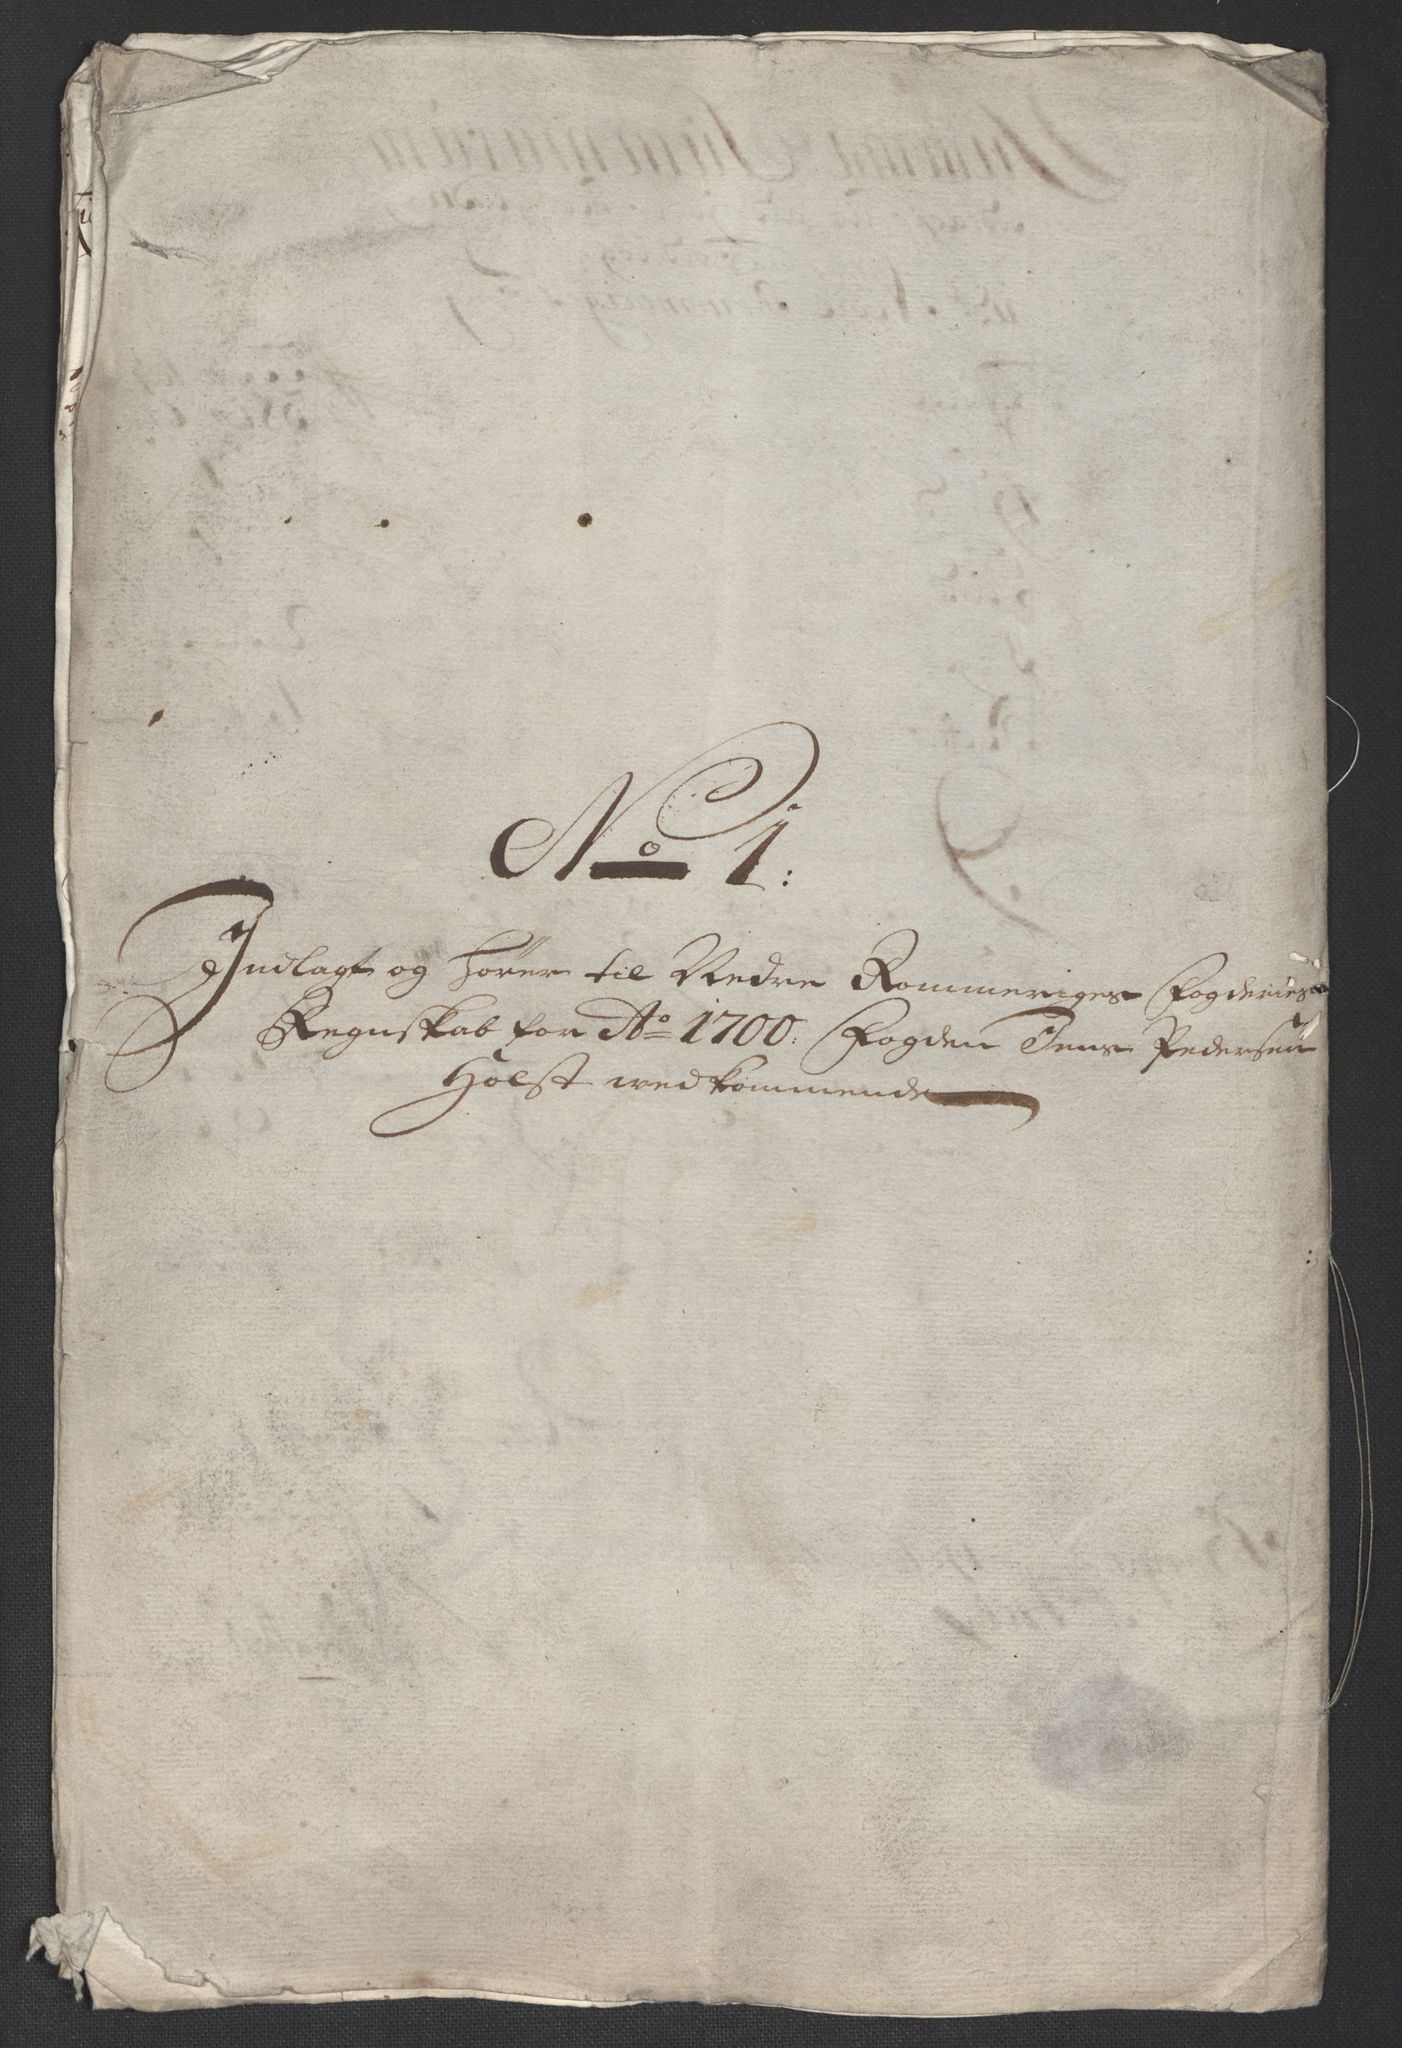 No 1:
Indlagt og hører til Nedre Rommeriges Fogderies
Regnskab for Ao 1700: Fogden Jens Pedersen
Holst wedkommende